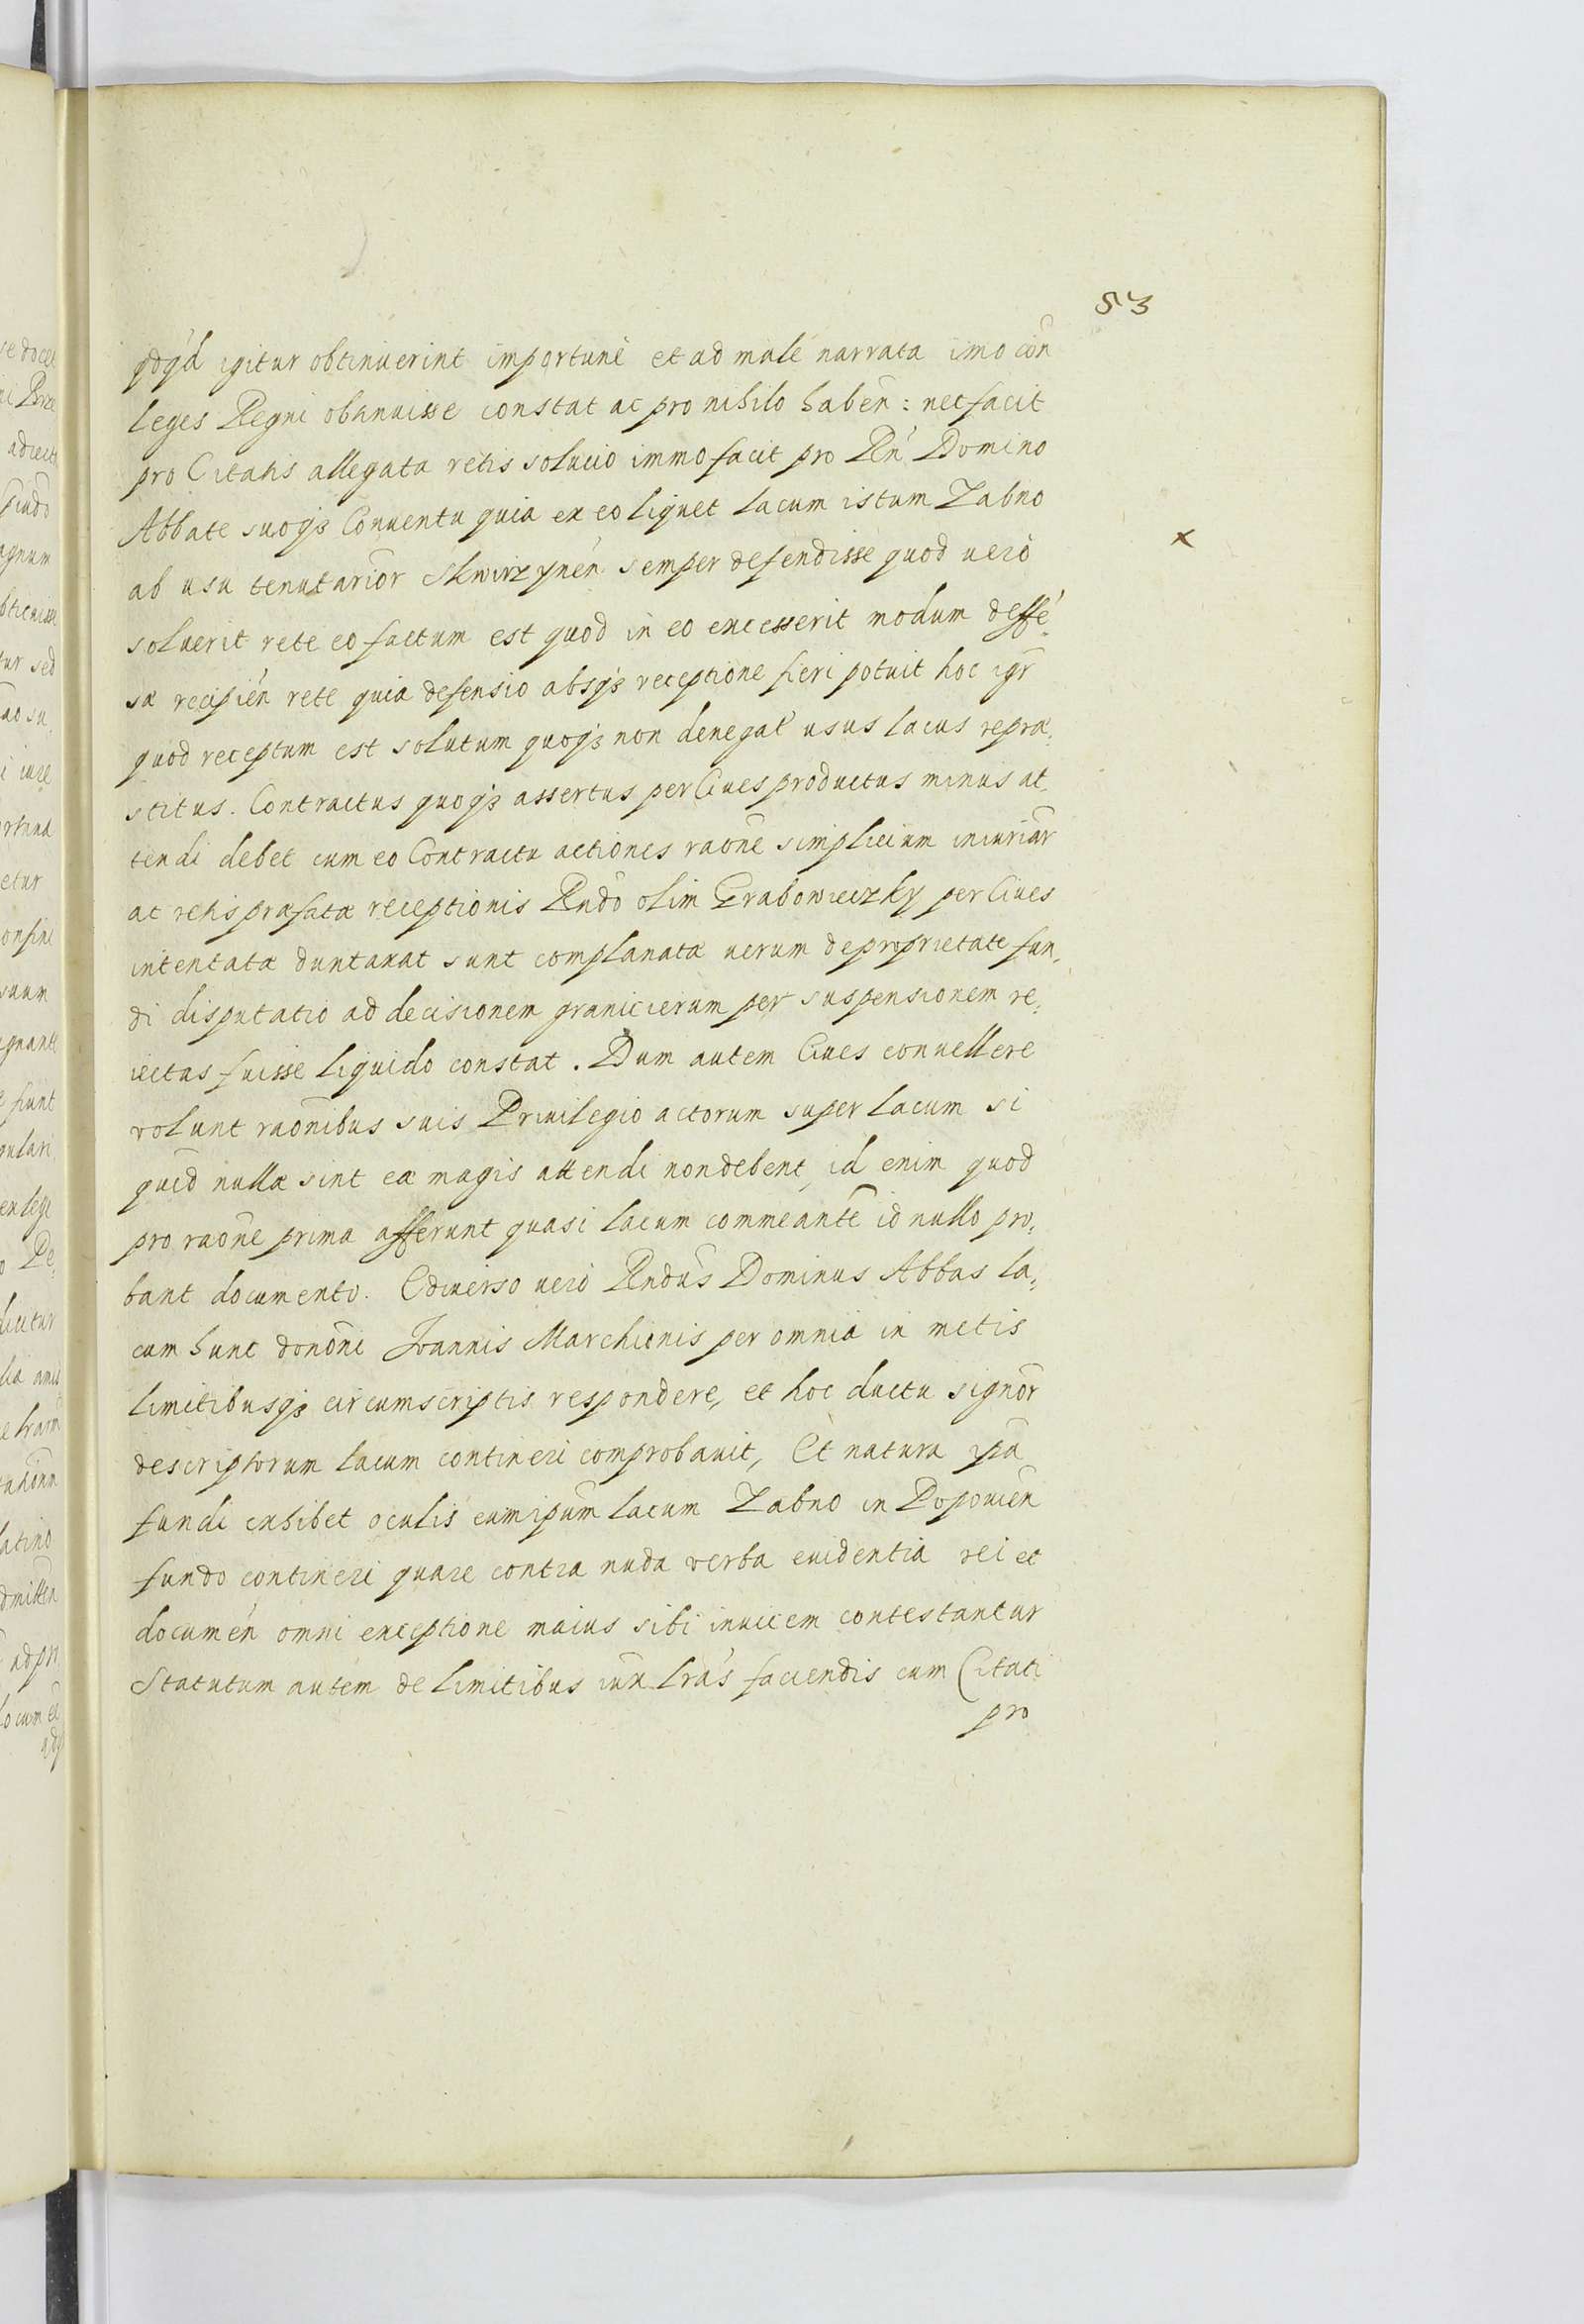 53
qdq́d igitur obtinuerint importunè et ad malè narrata imo con̄
leges Regni obtinuisse constat ac pro nihilo haben̄: nec facit
pro Citatis allegata retis solucio immo facit pro Rn̄ Domino
Abbate suoqꝫ Conuentu quia ex eo liquet lacum istum Zabno
ab usu tenutarior̄ Skwirzynen̄ semper defendisse quod uerò
x
soluerit rete eo factum est quod in eo excesserit modum deffē,
sæ recipień rete quia defensio absqꝫ receptione fieri potuit hoc igr̄
quod receptum est solutum quoqꝫ non denegat̄ usus lacus repræ,
stitus. Contractus quoqꝫ assertus per Ciues productus minus at,
tendi debet cum eo Contractu actiones raōne simplicium iniuriar̄
ac retis præfatæ receptionis Rndō olim Grabowieczky per Ciues
intentatæ duntaxat sunt complanatæ uerum de proprietate fun,
di disputatio ad decisionem granicierum per suspensionem re,
iectas fuisse liquido constat. Dum autem Ciues conuellere
volunt raōnibus suis Priuilegio actorum super lacum si
quid nullæ sint eæ magis attendi non debent, id enim quod
pro raōne prima afferunt quasi lacum commeante͞ id nullo pro,
bant documento. Ediuerso uerò Rndūs Dominus Abbas la,
cum hunc donōni Joannis Marchionis per omnia in metis
limitibusqꝫ circumscriptis respondere, et hoc ductu signor̄
descriptorum lacum contineri comprobauit, Et natura ipā
fundi exhibet oculis eum ipūm lacum Zabno in Popouień
fundo contineri quare contra nuda verba euidentia rei et
documeń omni exceptione maius sibi inuicem contestantur
Statutum autem de limitibus iux lrás faciendis cum Citati
pro